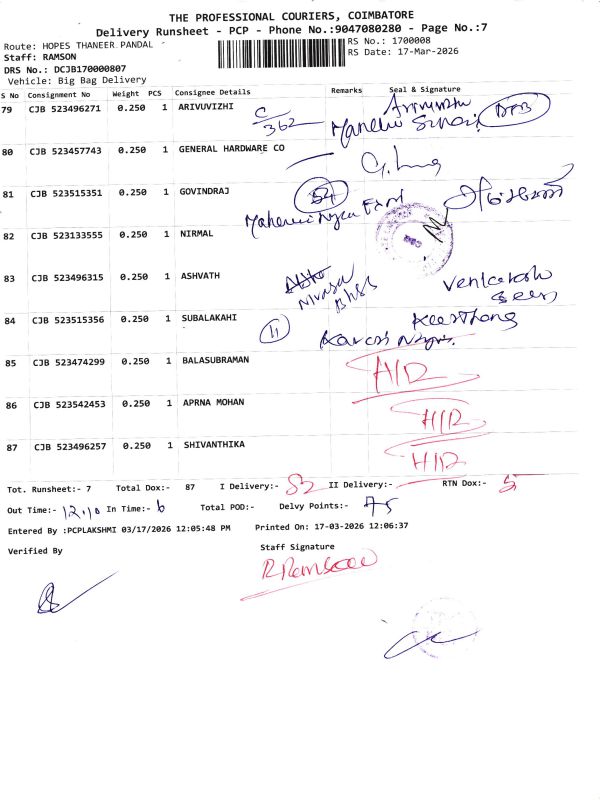 THE PROFESSIONAL COURIERS, COIMBATORE
Delivery Runsheet - PCP - Phone No.:9047080280 - Page No.:7
Route: HOPES THANEER PANDAL
RS No.: 1700008
Staff: RAMSON
RS Date: 17-Mar-2026
DRS No.: DCJB170000807
Vehicle: Big Bag Delivery
S No Consignment No Weight PCS Consignee Details Remarks Seal & Signature
79 CJB 523496271 0.250 1 ARIVUVIZHI C/362
80 CJB 523457743 0.250 1 GENERAL HARDWARE CO
81 CJB 523515351 0.250 1 GOVINDRAJ 54
82 CJB 523133555 0.250 1 NIRMAL
83 CJB 523496315 0.250 1 ASHVATH Venkatesh
84 CJB 523515356 0.250 1 SUBALAKAHI 11 Keerthana
85 CJB 523474299 1 BALASUBRAMAN H/D
86 CJB 523542453 0.250 1 APRNA MOHAN H/D
87 CJB 523496257 0.250 1 SHIVANTHIKA H/D
Tot. Runsheet:- 7 Total Dox:- 87 I Delivery:- 82 II Delivery:- RTN Dox:- 5
Out Time:- 12.10 In Time:- 6 Total POD:- Delvy Points:- 75
Entered By :PCPLAKSHMI 03/17/2026 12:05:48 PM Printed On: 17-03-2026 12:06:37
Verified By Staff Signature